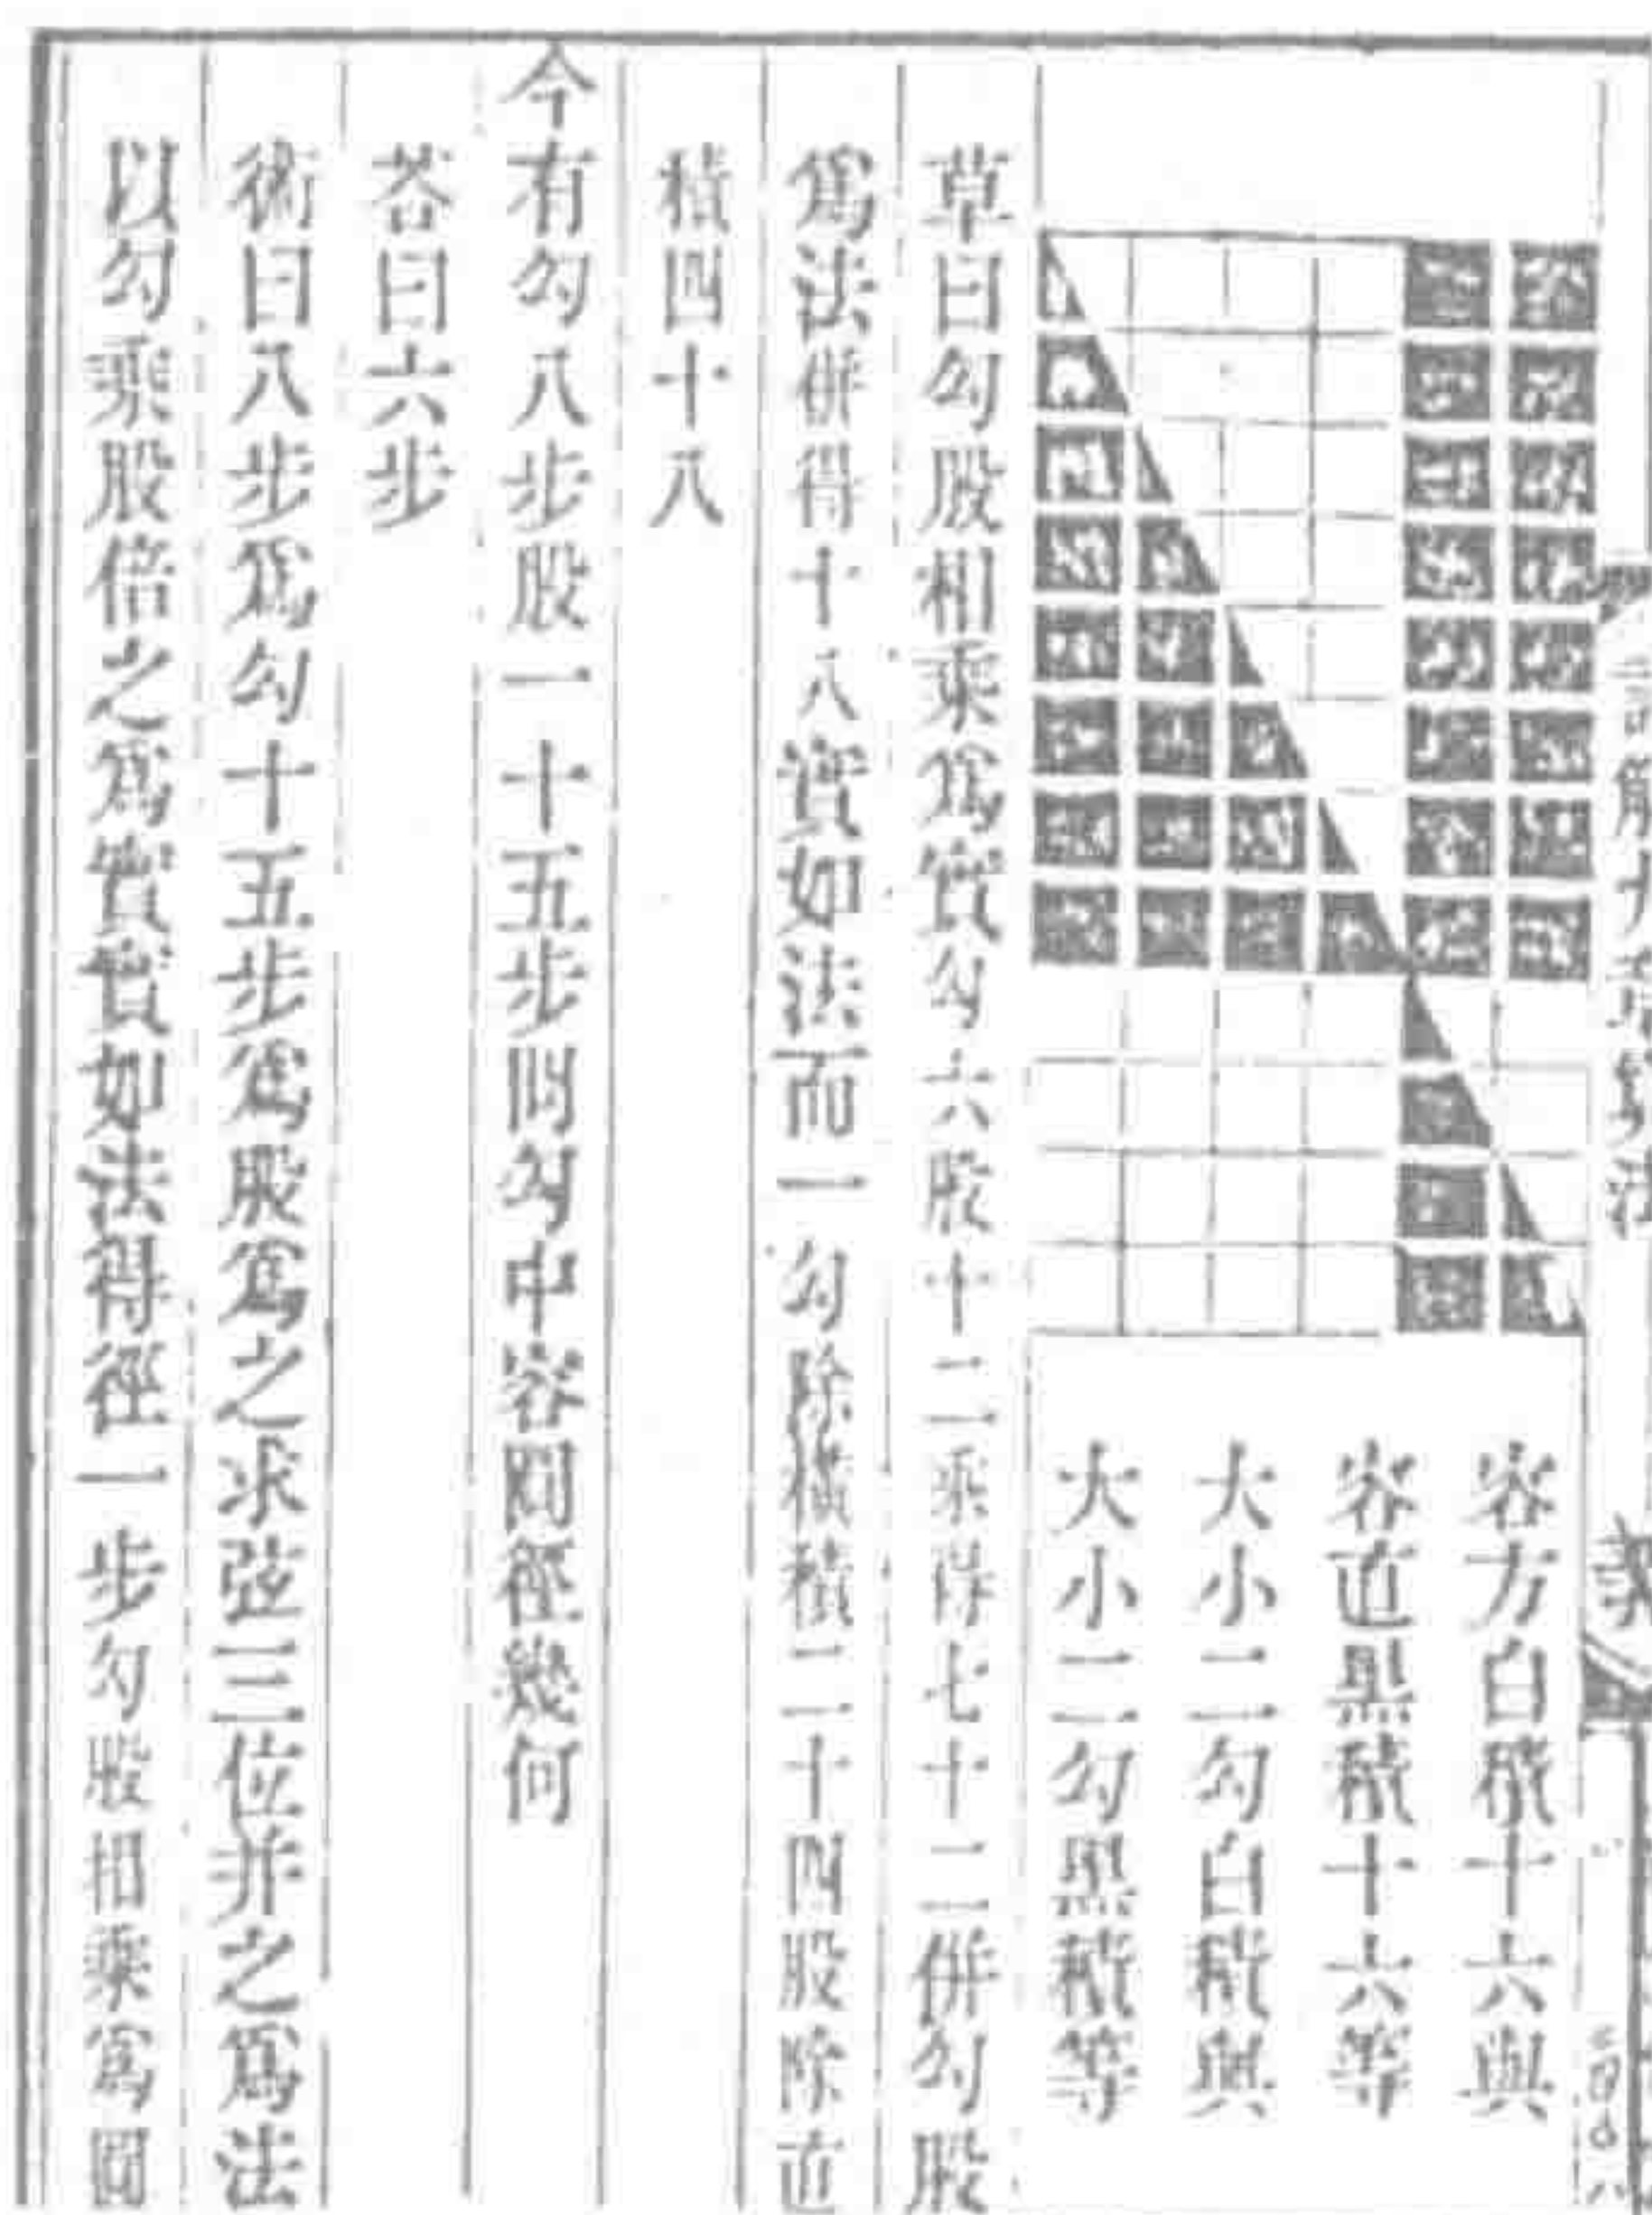 詳解九章算法
容方白積十六與
容直黑積十六等
大小二勾白積與
大小二勾黑積等
草曰勾股相乘爲實勾六股十二乘得七十二併勾股
爲法併得十八實如法而一勾除橫積二十四股除直
積四十八
今有勾八步股一十五步問勾中容圓徑幾何
荅曰六步
術曰八步爲勾十五步爲股爲之求弦三位并之爲法
以勾乘股倍之爲實實如法得徑一步勾股相乘爲圓